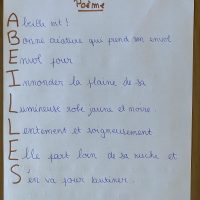 Poëme
Abeille est !
Bonne créature qui prend son envol
Envol pour
Innonder la plaine de sa
Lumineuse robe jaune et noire.
Lentement et soigneusement
Elle part loin de sa ruche et
S'en va pour butiner.